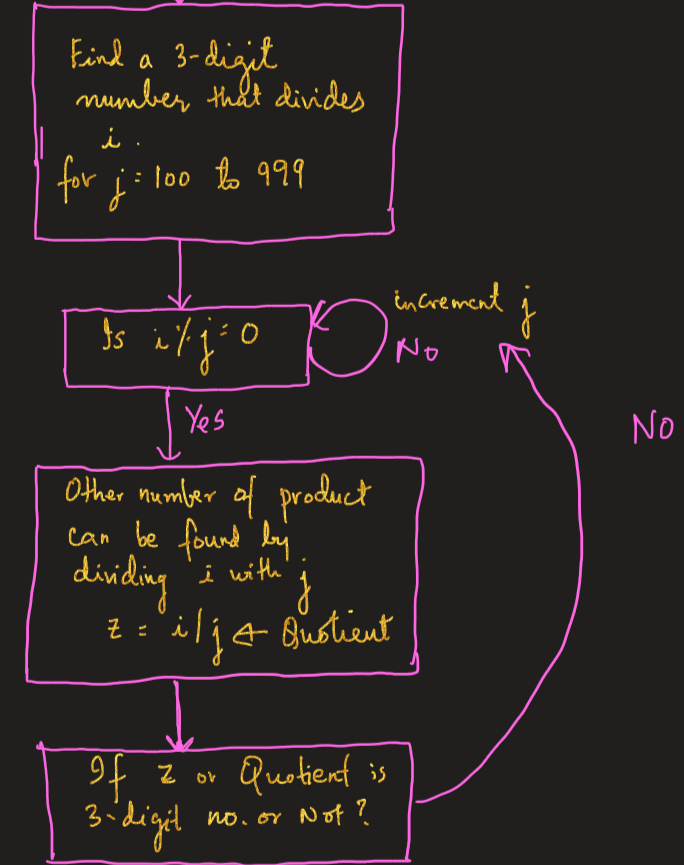 Find a 3-digit
number that divides
i.
for j = 100 to 999
Is i % j = 0
increment j
No
Yes
NO
Other number of product
can be found by
dividing i with j
z = i / j ← Quotient
If z or Quotient is
3-digit no. or Not ?